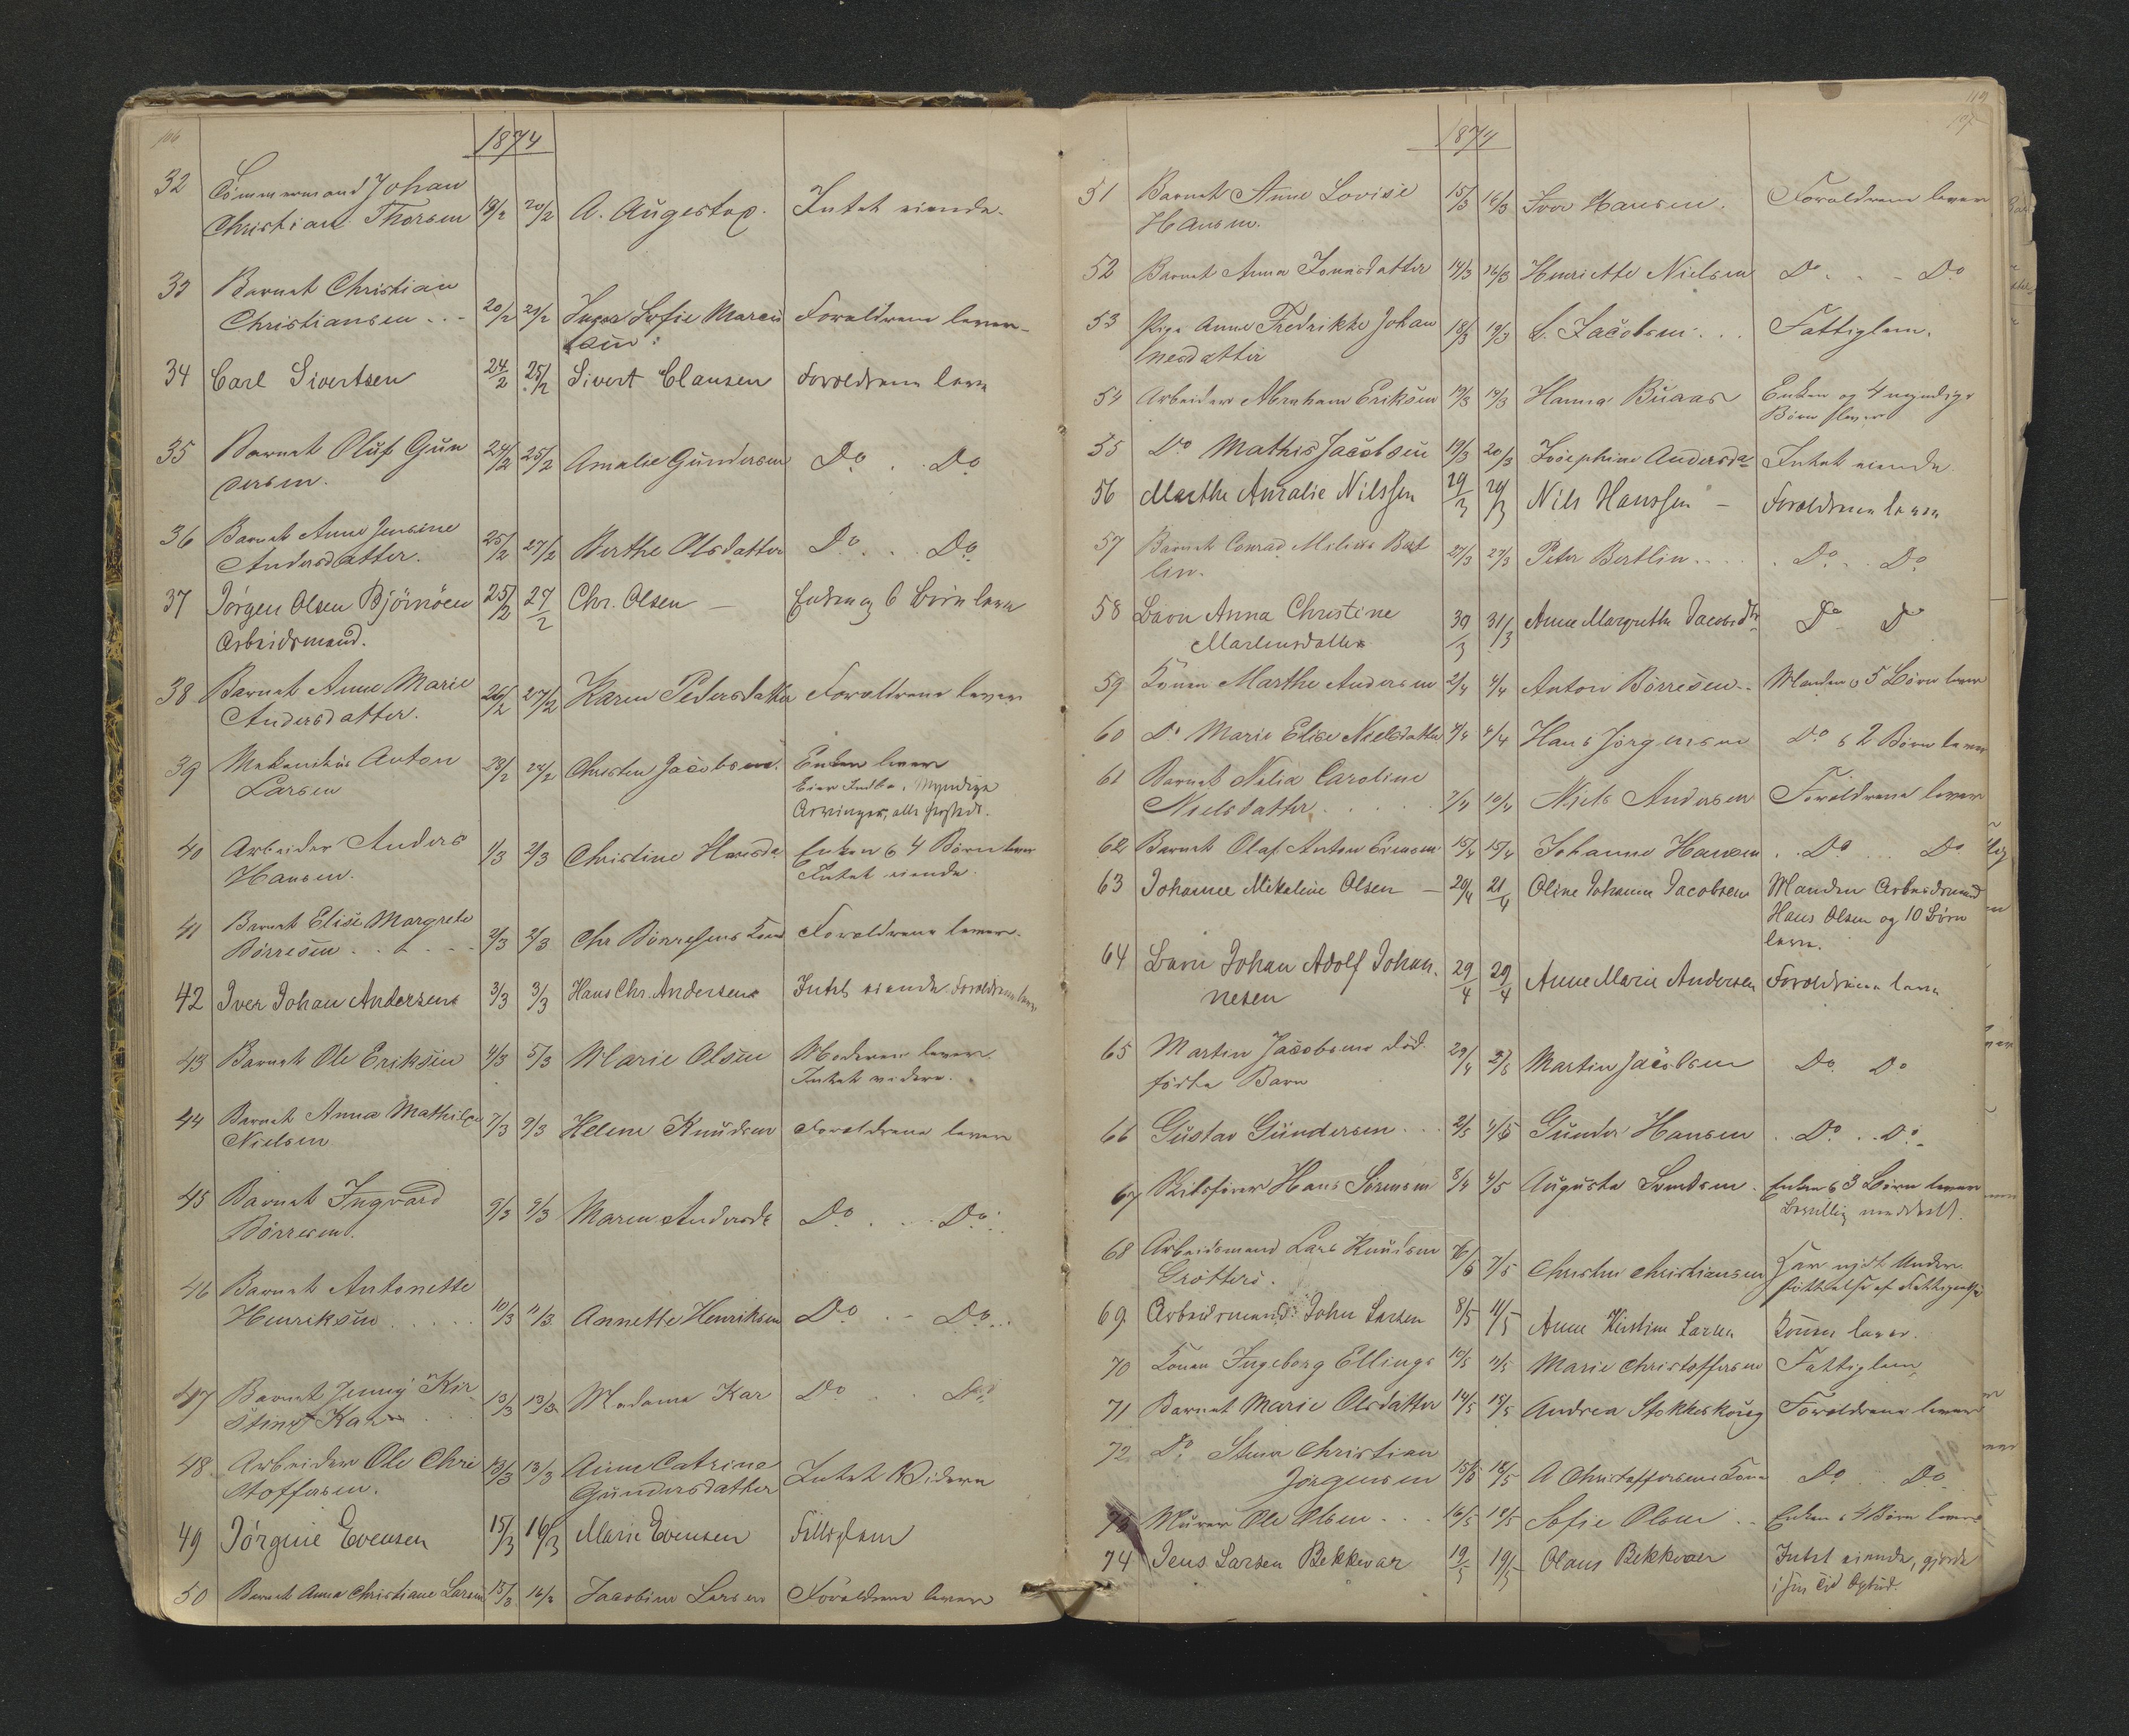 106
1874
32 Tömmermand Johan
Christian Thorsen 19/2 20/2 A. Augestap. Intet eiende.
33 Barnet Christian
Christiansen . . - 20/2 21/2 Sofie Marcu Foraldrene lever
34 Carl Sivertsen 24/2 25/2 Sivert Clausen Foraldrene leve
35 Barnet Oluf Gun
dersen. 24/2 25/2 Amalie Gundersen Do . . Do
36 Barnet Anne Jensine
Andersdatter. 25/2 27/2 Berthe Olsdatter Do . . . Do
37 Jörgen Olsen Björnöen 25/2 27/2 Chr. Olsen — Enken og 6 Börn leve
Arbeidsmand.
38 Barnet Anne Marie
Andersdatter. 26/2 27/2 Karen Pedersdatter Foraldrene lever
39 Mekanikus Anton
Larsen 23/2 24/2 Christen Jacobsen. Enken lever
Eier Indbo. Myndige
Arvinger, alle
40 Arbeider Anders
Hansen. 1/3 2/3 Christine Hansda Enken & 4 Börn lever
Intet eiende.
41 Barnet Elise Margrete
Börresen . . . 2/3 2/3 Chr Börresens Kone Foraldrene lever.
42 Iver Johan Andersens 3/3 3/3 Hans Chr. Andersens Intet eiende Foraldrene leve
43 Barnet Ole Eriksen 4/3 5/3 Marie Olsen Moderen lever
Intet videre.
44 Barnet Anna Mathilde
Nielsen 7/3 9/3 Helene Knudsen Foraldrene lever
45 Barnet Ingvard
Börresen. 9/3 9/3 Maren Andersda Do . . . Do
46 Barnet Antonette
Henriksen . . . . . 10/3 11/3 Annette Henriksen Do . - Do . .
47 Barnet Jenny Kir
stine Kar 13/3 13/3 Madame Kar Do . . Do
48 Arbeider Ole Chri
stoffersen. 13/3 13/3 Anne Catrine
Gundersdatter Intet Videre
49 Jörgine Evensen 15/3 16/3 Marie Evensen Fattiglem
50 Barnet Anna Christiane Larsen 15/3 16/3 Jacobine Larsen Foraldrene lever
119
1874
51 Barnet Anne Lovise
Hansen. 15/3 16/3 Iver Hansen. Foraldrene lever
52 Barnet Anna Jonasdatter 14/3 16/3 Henriette Nielsen Do . . - Do
53 Pige Anne Fredrikke Johan
nesdatter 18/3 19/3 L. Jacobsen . . . Fattiglem.
54 Arbeider Abraham Eriksen 19/3 19/3 Hanna Buaas Enken og 4 myndige
Börn lever
55 Do Mathis Jacobsen 19/3 20/3 Josephine Andersda Intet eiende
56 Marthe Amalie Nilssen 29/3 29/3 Nils Hanssen — Foraldrene leve
57 Barnet Conrad Milius Bert
lin. 27/3 27/3 Peter Bertlin . . . . . Do . . Do
58 Barn Anna Christine
Martensdatter 30/3 31/3 Anne Margrethe Jacobsdtr Do Do
59 Konen Marthe Andersen 2/4 4/4 Anton Börresen . . Manden & 5 Börn lever
60 Do Marie Elise Nielsdatter 4/4 4/4 Hans Jörgensen Do & 2 Börn lever
61 Barnet Nelia Caroline
Nielsdatter. . . . . 7/4 10/4 Niels Andersen Foraldrene lever
62 Barnet Olaf Anton Evensen 15/4 15/4 Johanne Hansen . . Do . . . Do
63 Johanne Mikeline Olsen — 20/4 21/4 Oline Johanne Jacobsen Manden Arbeidsmand
Hans Olsen og 10 Börn
leve.
64 Barn Johan Adolf Johan.
nesen 29/4 29/4 Anne Marie Andersen Foraldrene leve
65 Martin Jacobsens död
födte Barn 29/4 2/5 Martin Jacobsen Do Do
66 Gustav Gundersen . . . 2/5 4/5 Gunder Hansen . . Do . . Do
67 Hans Sörensen 3/4 4/5 Augusta Svendsen . Enken & 3 Börn lever
Bevilling meddelt.
68 Arbeidsmand Lars Knudsen
Grötterö. 7/5 Christen Christiansen Har nydt Under
stöttelse af
69. Arbeidsmand John Larsen 8/5 11/5 Anne Kirstine Larsen Konen lever.
70 Konen Ingeborg Ellings 10/5 11/5 Marie Christoffersen Fattiglem,
71 Barnet Marie Olsdatter 14/5 15/5 Andrea Stokkeskoug Foraldrene lever
72 Do Stener Christian
Jörgensen 15/5 18/5 A Christoffersens Kone Do . . Do
73 Murer Ole Olsen . . . 16/5 18/5 Sofie Olsen . . Enken & 4 Börn lever
74 Jens Larsen Bekkevar 19/5 19/5 Olaus Bekkevaer Intet eiende, gjorde
i sin Tid Opbud.